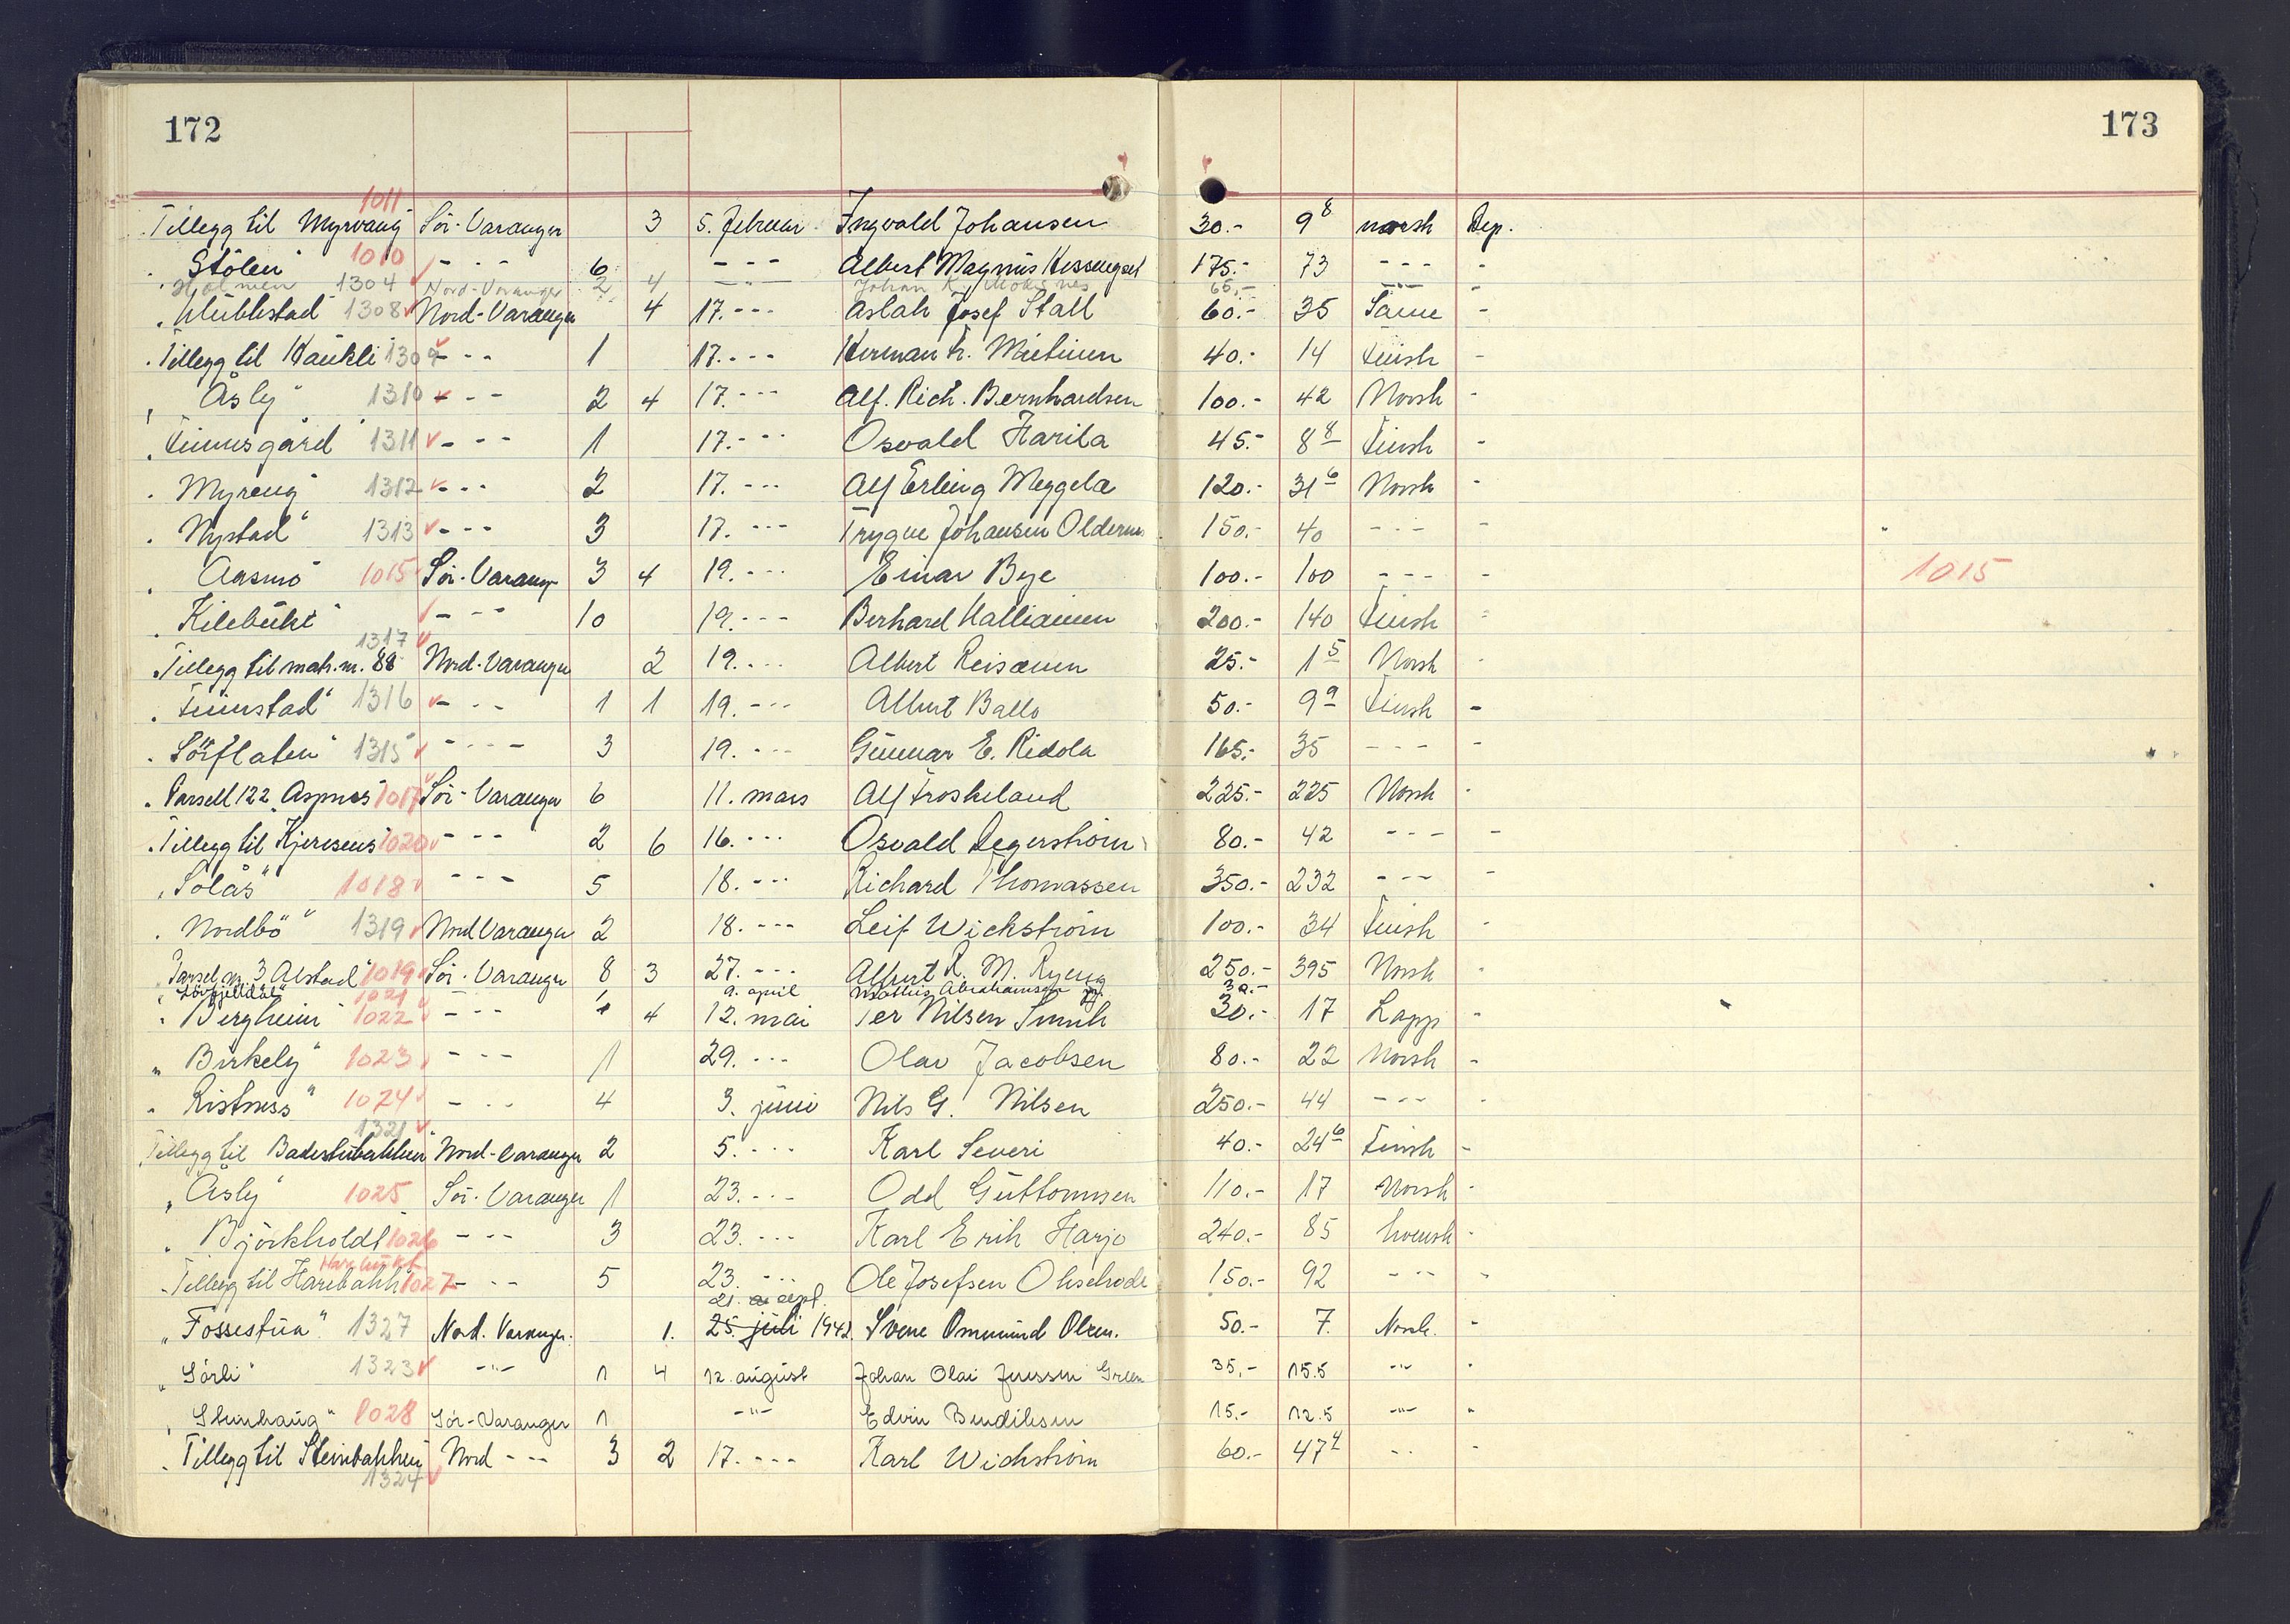 172
173
1011
Tillegg til Myrvang Sör-Varanger 3 5. februar Ingvald Johansen 30.- 9 8 norsk Dep.
" Stölen" 1010 - - - 6 - - - Albert Magnus Hessengset 175.- 73 - - - -
" Holmen 1304 Nord-Varanger 2 4 - " - Johan K. 65.- - " - -
" Klubbstad 1308 Nord-Varanger 4 17. - - - Aslak Josef Stall 60.- 35 Same -
" Tillegg til Haukli 1309 - - - 1 17. - - - Herman Fr. Mietinen 40.- 14 Finsk -
" Åsly" 1310 - - - 2 4 17. - - - Alf. Rich. Bernhardsen 100.- 42 Norsk -
" Finnesgård" 1311 - - - 1 17. - - - Osvald Harila 45.- 8 8 Finsk -
" Myreng" 1312 - - - 2 17. - - - Alf Erling Meggela 120.- 31 6 Norsk -
" Nystad" 1313 - - - 3 17. - - - Trygve Johansen 150.- 40 - - - -
" Aasmo" 1015 Sör-Varang 3 4 19. - - - Einar Bye 100.- 100 - - - - 1015
" Kilebukt" - - - 10 19. - - - Berhard Halliainen 200.- 140 Finsk -
1317
" Tillegg til matr. nr. 88 Nord-Varanger 2 19. - - - Albert Reisænen 25.- 1 5 Norsk -
" Finnstad" 1316 - - - 1 1 19. - - - Albert Ballo 50.- 9 9 Finsk -
" Sörflaten" 1315 - - - 3 19. - - - Gunnar E. Ridola 165.- 35 - - - -
" Parsell 122 Aspnes" 1017 Sör-Varanger 6 11. mars Alf Froskeland 225.- 225 Norsk -
" Tillegg til 1020 - - - 2 6 16. - - - Osvald Degerström 80.- 42 - - - -
" Solås" 1018 - - - 5 18. - - - Richard Thomassen 350.- 232 - - - -
" Nordbö" 1319 Nord Varanger 2 18. - - - Leif Wickström 100.- 34 Finsk -
" Parsel nr. 3 Alstad" 1019 Sör-Varanger 8 3 27. - - - Albert R. M. Ryeng 250.- 395 Norsk -
" 1021 1 9. april Mathis Abrahamsen 30.-
" Bergheim" 1022 - - - 4 12. mai Per Nilsen 30.- 17 Lapp -
" Birkely" 1023 - - - 1 29. - - - Olav Jacobsen 80.- 22 Norsk -
" Ristness" 1024 - - - 4 3. juni Nils G. Nilsen 250.- 44 - - - -
1321
Tillegg til Badestubakken Nord-Varanger 2 5. - - - Karl Severi 40.- 24 6 Finsk -
" Åsly" 1025 Sör-Varanger 1 23. - - - Odd Guttormsen 110.- 17 Norsk -
" Björkholdt" 1026 - - - 3 23. - - - Karl Erik Harjo 240.- 85 kvensk -
Harebukt
" Tillegg til Harebakk 1027 - - - 5 23. - - - Ole Josefsen 150.- 92 - - - -
21. sept.
" Fossestua" 1327 Nord. Varanger. 1. 25. juli 1942 Svene Ommund Olsen. 50.- 7. Norsk. -
" Sörli" 1323 - " - 1 4 12. august Johan Olai Jenssen Green 35.- 15.5 - " - -
" Steinhaug" 1028 Sör-Varanger 1 - " - Edvin Bendiksen 15.- 12.5 - " - -
" Tillegg til Steinbakken Nord - - - 3 2 17. - - - Karl Wickström 60.- 47 4 - - -
1324